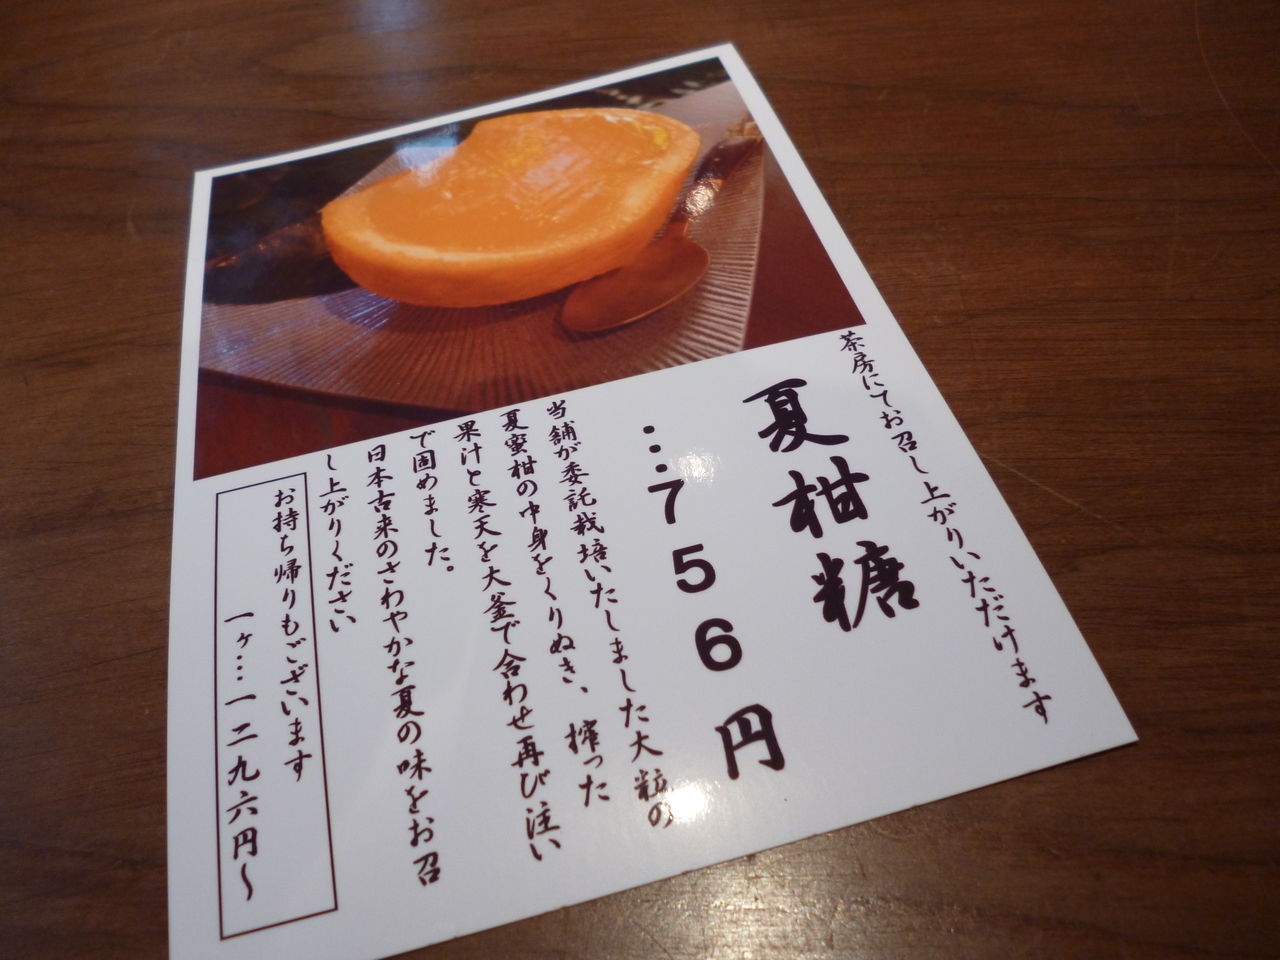 茶房にてお召し上がりいただけます
夏柑糖
…756円
当舗が委託栽培いたしました大粒の
夏蜜柑の中身をくりぬき、搾った
果汁と寒天を大釜で合わせ再び注い
で固めました。
日本古来のさわやかな夏の味をお召
し上がりください
お持ち帰りもございます
一ヶ…一二九六円〜